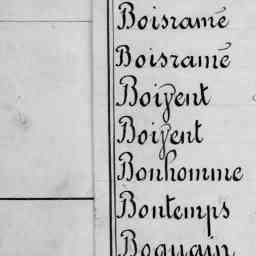 Boisramé
Boisramé
Boizent
Boizent
Bonhomme
Bontemps
Boquain